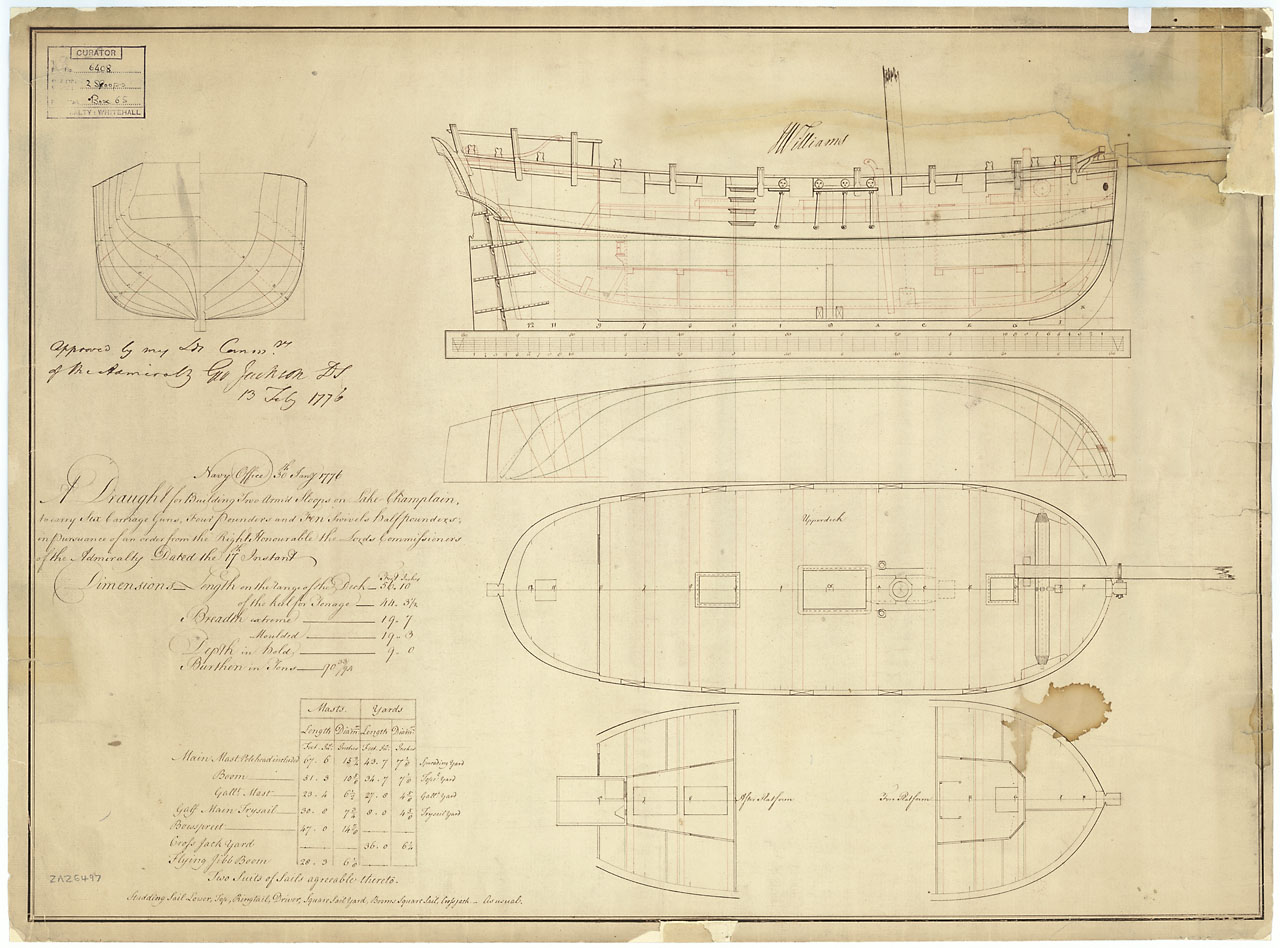 CURATOR
6408
2 Sloops
Box 66
ALTY: WHITEHALL
Williams
Approved by my Lds Commrs
of the Admiralty Geo Jackson DS
13 Feby 1776
Navy Office 30th Jany 1776
A Draught for Building Two Armed Sloops on Lake Champlain,
to carry Six Carriage Guns, Four Pounders and Ten Swivels Half pounders,
in pursuance of an order from the Right Honourable the Lords Commissioners
of the Admiralty Dated the 17th Instant
Dimensions Length on the range of the Deck — 56. 10
Feet Inches
of the keel for Tonage — 44. 3½
Breadth extreme — 19. 7
Moulded — 19. 3
Depth in hold — 9. 0
Burthen in Tons — 90
Masts. Yards
Length Diamr Length Diamr
Feet. In. Inches Feet. In. Inches
Main Mast Polehead included 67. 6 43. 7 Spreading Yard
Boom 51. 3 34. 7 Yard
Gallt Mast 23. 4 27. 0 Gallt Yard
Gaff Main Trysail 30. 0 8. 0 Trysail Yard
Bowsprit 47. 0
Cross Jack Yard 36. 0
Flying Jibb Boom 28. 3
Two Suits of Sails agreeable thereto.
Studding Sail Lower, Top, Ringtail, Driver, Square Sail Yard, Booms Square Sail, — As usual.
ZAZ6497
Upperdeck
After Platform
Fore Platform